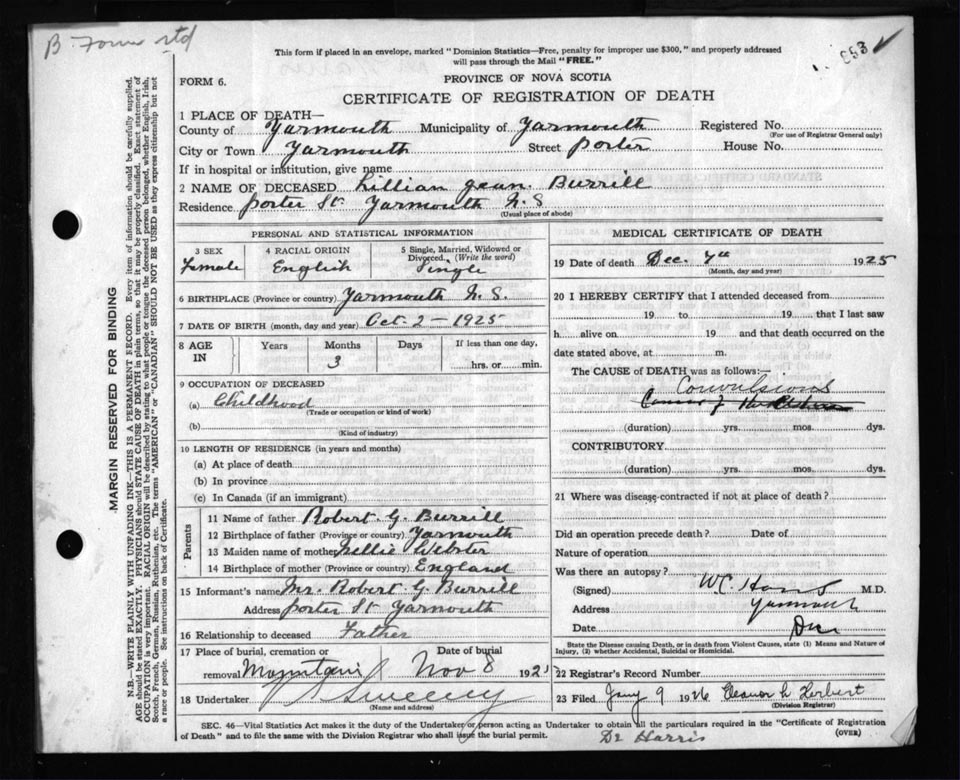 B. Form std
853 ✓
This form if placed in an envelope, marked "Dominion Statistics—Free, penalty for improper use $300," and properly addressed
will pass through the Mail "FREE."
FORM 6.
PROVINCE OF NOVA SCOTIA
CERTIFICATE OF REGISTRATION OF DEATH
1 PLACE OF DEATH—
County of Yarmouth Municipality of Yarmouth Registered No.
(For use of Registrar General only)
City or Town Yarmouth Street Porter House No.
If in hospital or institution, give name
2 NAME OF DECEASED Lillian Jean Burrill
Residence Porter St Yarmouth N.S
(Usual place of abode)
PERSONAL AND STATISTICAL INFORMATION
3 SEX 4 RACIAL ORIGIN 5 Single, Married, Widowed or
Divorced. (Write the word)
Female English Single
6 BIRTHPLACE (Province or country) Yarmouth N.S.
7 DATE OF BIRTH (month, day and year) Oct-2-1925
8 AGE IN Years Months Days If less than one day,
3 hrs. or min.
9 OCCUPATION OF DECEASED
(a) Childhood
(Trade or occupation or kind of work)
(b)
(Kind of industry)
10 LENGTH OF RESIDENCE (in years and months)
(a) At place of death
(b) In province
(c) In Canada (if an immigrant)
Parents
11 Name of father Robert G. Burrill
12 Birthplace of father (Province or country) Yarmouth
13 Maiden name of mother Nellie Webster
14 Birthplace of mother (Province or country) England
15 Informant's name Mr. Robert G. Burrill
Address Porter St Yarmouth
16 Relationship to deceased Father
17 Place of burial, cremation or Date of burial
removal Mountain Nov 8 192
18 Undertaker Sweeny
(Name and address)
MEDICAL CERTIFICATE OF DEATH
19 Date of death Dec. 7th 1925
(Month, day and year)
20 I HEREBY CERTIFY that I attended deceased from
19 to 19 that I last saw
h alive on 19 and that death occurred on the
date stated above, at m.
The CAUSE of DEATH was as follows:—
Convulsions
(duration) yrs. mos. dys.
CONTRIBUTORY
(duration) yrs. mos. dys.
21 Where was disease contracted if not at place of death?
Did an operation precede death? Date of
Nature of operation
Was there an autopsy?
(Signed) M.D.
Address Yarmouth
Date
State the Disease causing Death, or in death from Violent Causes, state (1) Means and Nature of
Injury, (2) whether Accidental, Suicidal or Homicidal.
22 Registrar's Record Number
23 Filed Jany 9 1926 Eleanor L Herbert
(Division Registrar)
SEC. 46—Vital Statistics Act makes it the duty of the Undertaker or person acting as Undertaker to obtain all the particulars required in the "Certificate of Registration
of Death" and to file the same with the Division Registrar who shall issue the burial permit.
(OVER)
Dr Harris
MARGIN RESERVED FOR BINDING
N.B.—WRITE PLAINLY WITH UNFADING INK—THIS IS A PERMANENT RECORD. Every item of information should be carefully supplied.
AGE should be stated EXACTLY. PHYSICIANS should STATE CAUSE OF DEATH in plain terms, so that it may be properly classified. Exact statement of
OCCUPATION is very important. RACIAL ORIGIN will be described by stating to what people or tongue the deceased person belonged, whether English, Irish,
Scotch, French, German, Russian, Ruthenian, etc. The terms "AMERICAN" or "CANADIAN" SHOULD NOT BE USED as they express citizenship but not
a race or people. See instructions on back of Certificate.